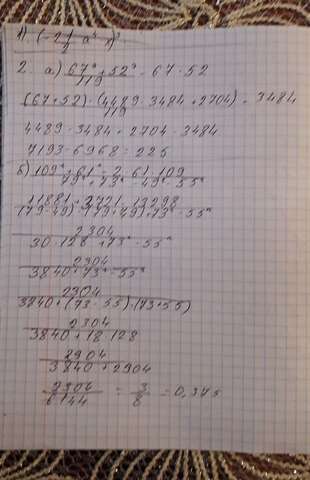 1) (-2 1/2 a⁴
2. а) 67³+52³ - 67·52
119
(67+52)·(4489-3484+2704) - 3484
119
4489-3484+2704-3484
7193-6968=225
б) 109²+61²-2·61·109
79²+73²-49²-55²
11881+3721-13298
(79-49)·(79+49)+73²-55²
2304
30·128+73²-55²
2304
3840+73²-55²
2304
3840+(73-55)·(73+55)
2304
3840+18·128
2304
3840+2304
2304/6144 = 3/8 = 0,375